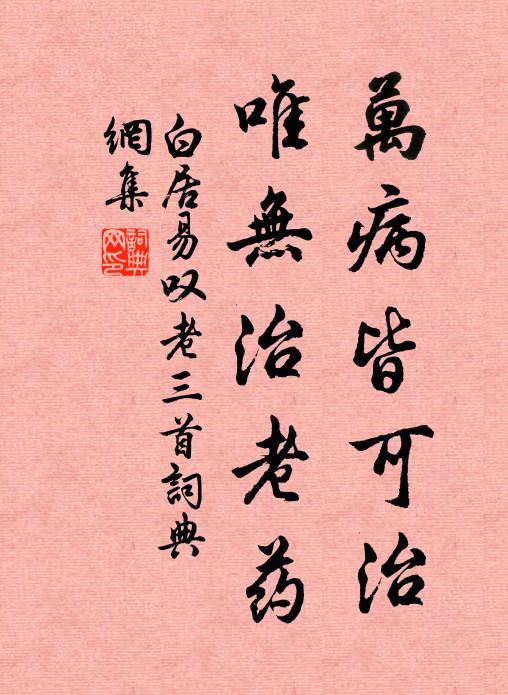 萬病皆可治
唯無治老药
白居易叹老三首詞典
網集
詞典
网印